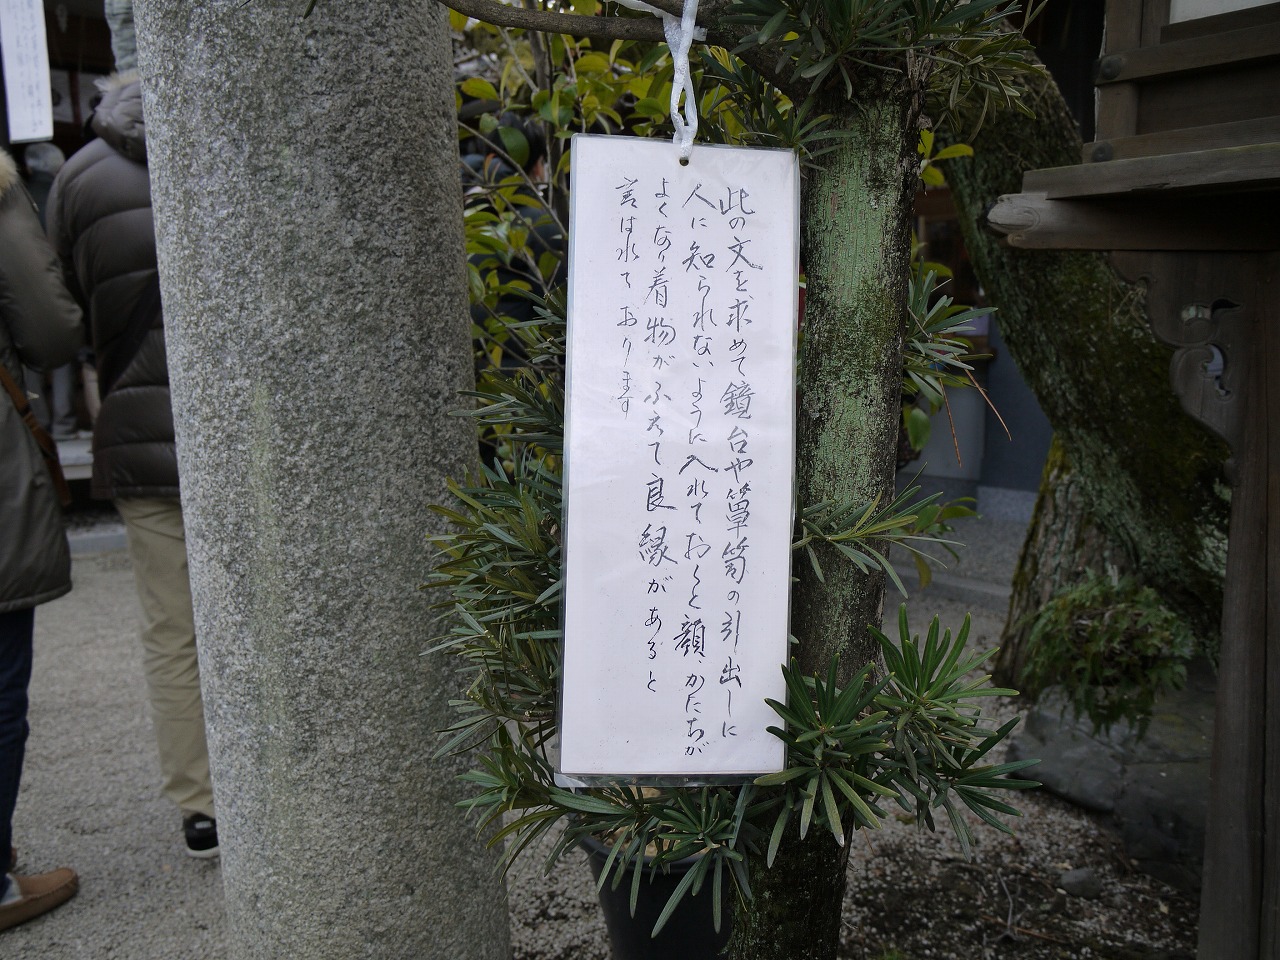 此の文を求めて鏡台や箪笥の引出しに
人に知られないように入れておくと顔、かたちが
よくなり着物がふえて良縁があると
言はれております